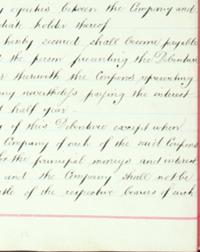 equities between the Company and
holder thereof
hereby secured shall become payable
the person presenting the Debenture
therewith the Coupons representing
nevertheless paying the interest
half year
of this Debenture except when
Company of each of the said Coupons
for the principal moneys and interest
and the Company shall not be
of the respective bearers of such